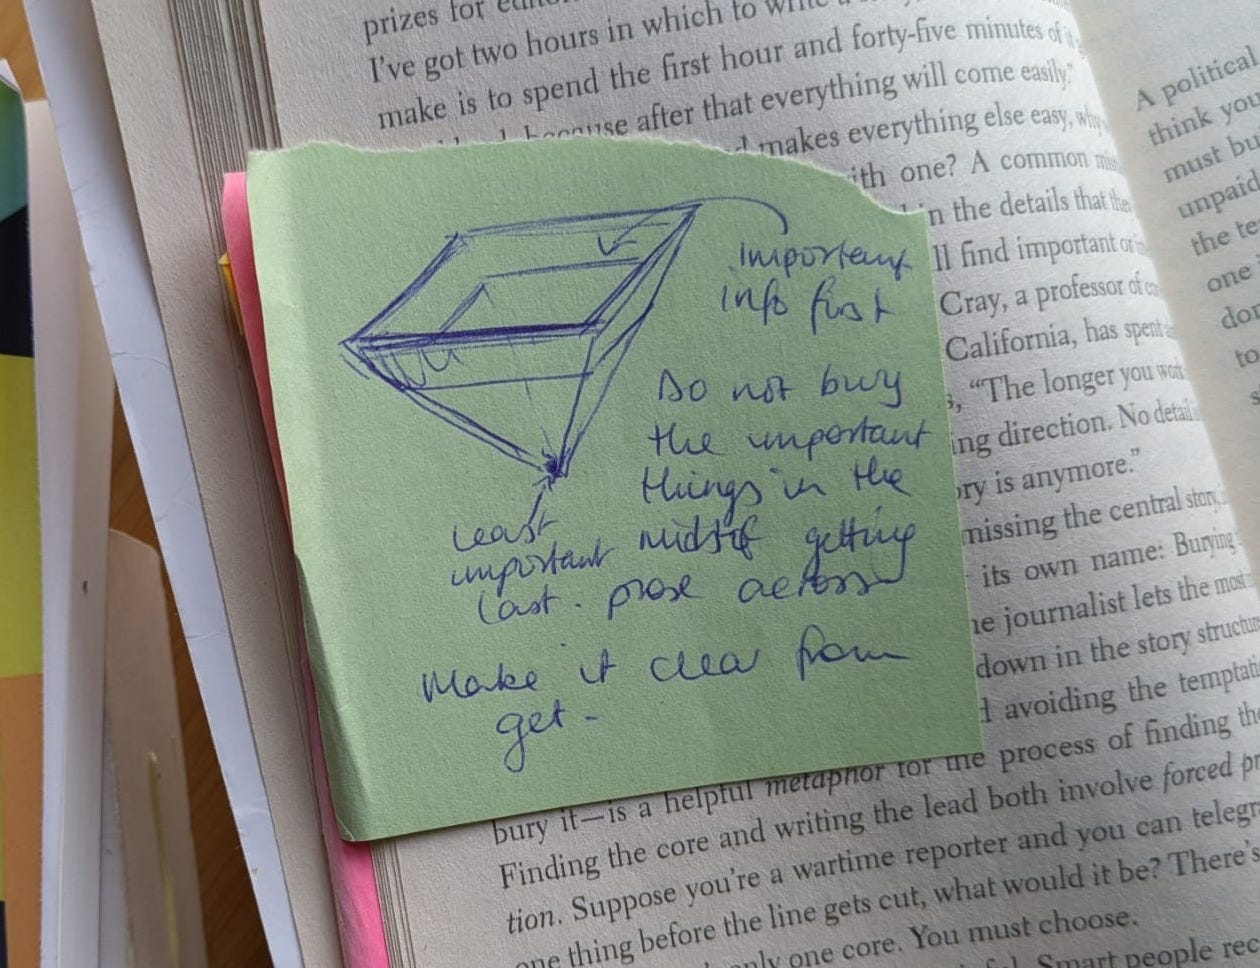 prizes for
I've got two hours in which to write a
make is to spend the first hour and forty-five minutes of
because after that everything will come easily."
makes everything else easy, why
with one? A common
in the details that the
ll find important or
Cray, a professor of
California, has spent
"The longer you
ing direction. No detail
ory is anymore."
missing the central story,
its own name: Burying
he journalist lets the most
down in the story structure
d avoiding the temptati
process of finding the
bury it—is a helpful metaphor for the
Finding the core and writing the lead both involve forced pr
tion. Suppose you're a wartime reporter and you can telegr
one thing before the line gets cut, what would it be? There's
only one core. You must choose.
Smart people rec
Important
info first
Do not bury
the important
things in the
midst of getting
prose across
Least
important
last.
Make it clear from
get-
A political
think you
must bu
unpaid
the te
one
don
to